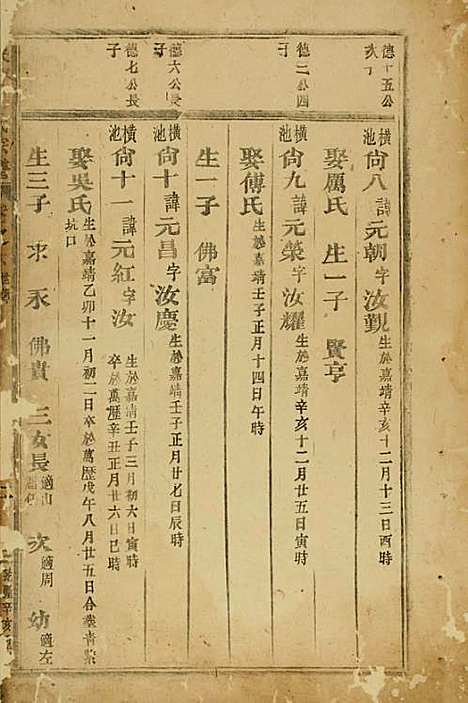 德十五公
亥子
橫池尙八諱元朝字汝覲生於嘉靖辛亥十二月十三日酉時
娶厲氏 生一子 賢亨
德二公四
子
橫池尙九諱元榮字汝耀生於嘉靖辛亥十二月廿五日寅時
娶傅氏生於嘉靖壬子正月十四日午時
生一子 佛富
德六公長
子
橫池尙十諱元昌字汝慶生於嘉靖壬子正月廿七日辰時
德七公長
子
橫池尙十一諱元紅字汝 生於嘉靖壬子三月初六日寅時
卒於萬歷辛丑正月廿六日巳時
娶吳氏坑口生於嘉靖乙卯十一月初二日卒於萬歷戊午八月廿五日合葬青㮣
生三子 求 永 佛貴 三女長適山 次適周 幼適左
乾隆辛亥